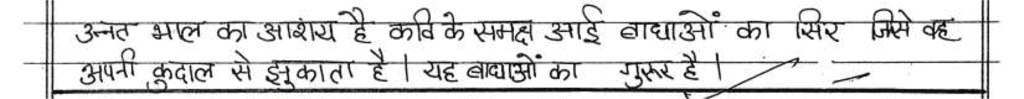 उन्नत भाल का आशय है कवि के समक्ष आई बाधाओं का सिर जिसे वह
अपनी कुदाल से झुकाता है। यह बाधाओं का गुरूर है।